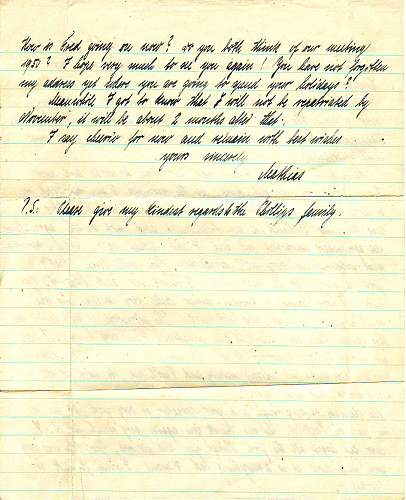 How is Fred going on now? Do you both think of our meeting
1951? I hope very much to see you again! You have not forgotten
my address yet where you are going to spend your holidays?
Meanwhile I got to know that I will not be repatriated by
November, it will be about 2 months after that.
I say cheerio for now and remain with best wishes
yours sincerely
Mathias
P.S. Please give my kindest regards to the Phillips family.